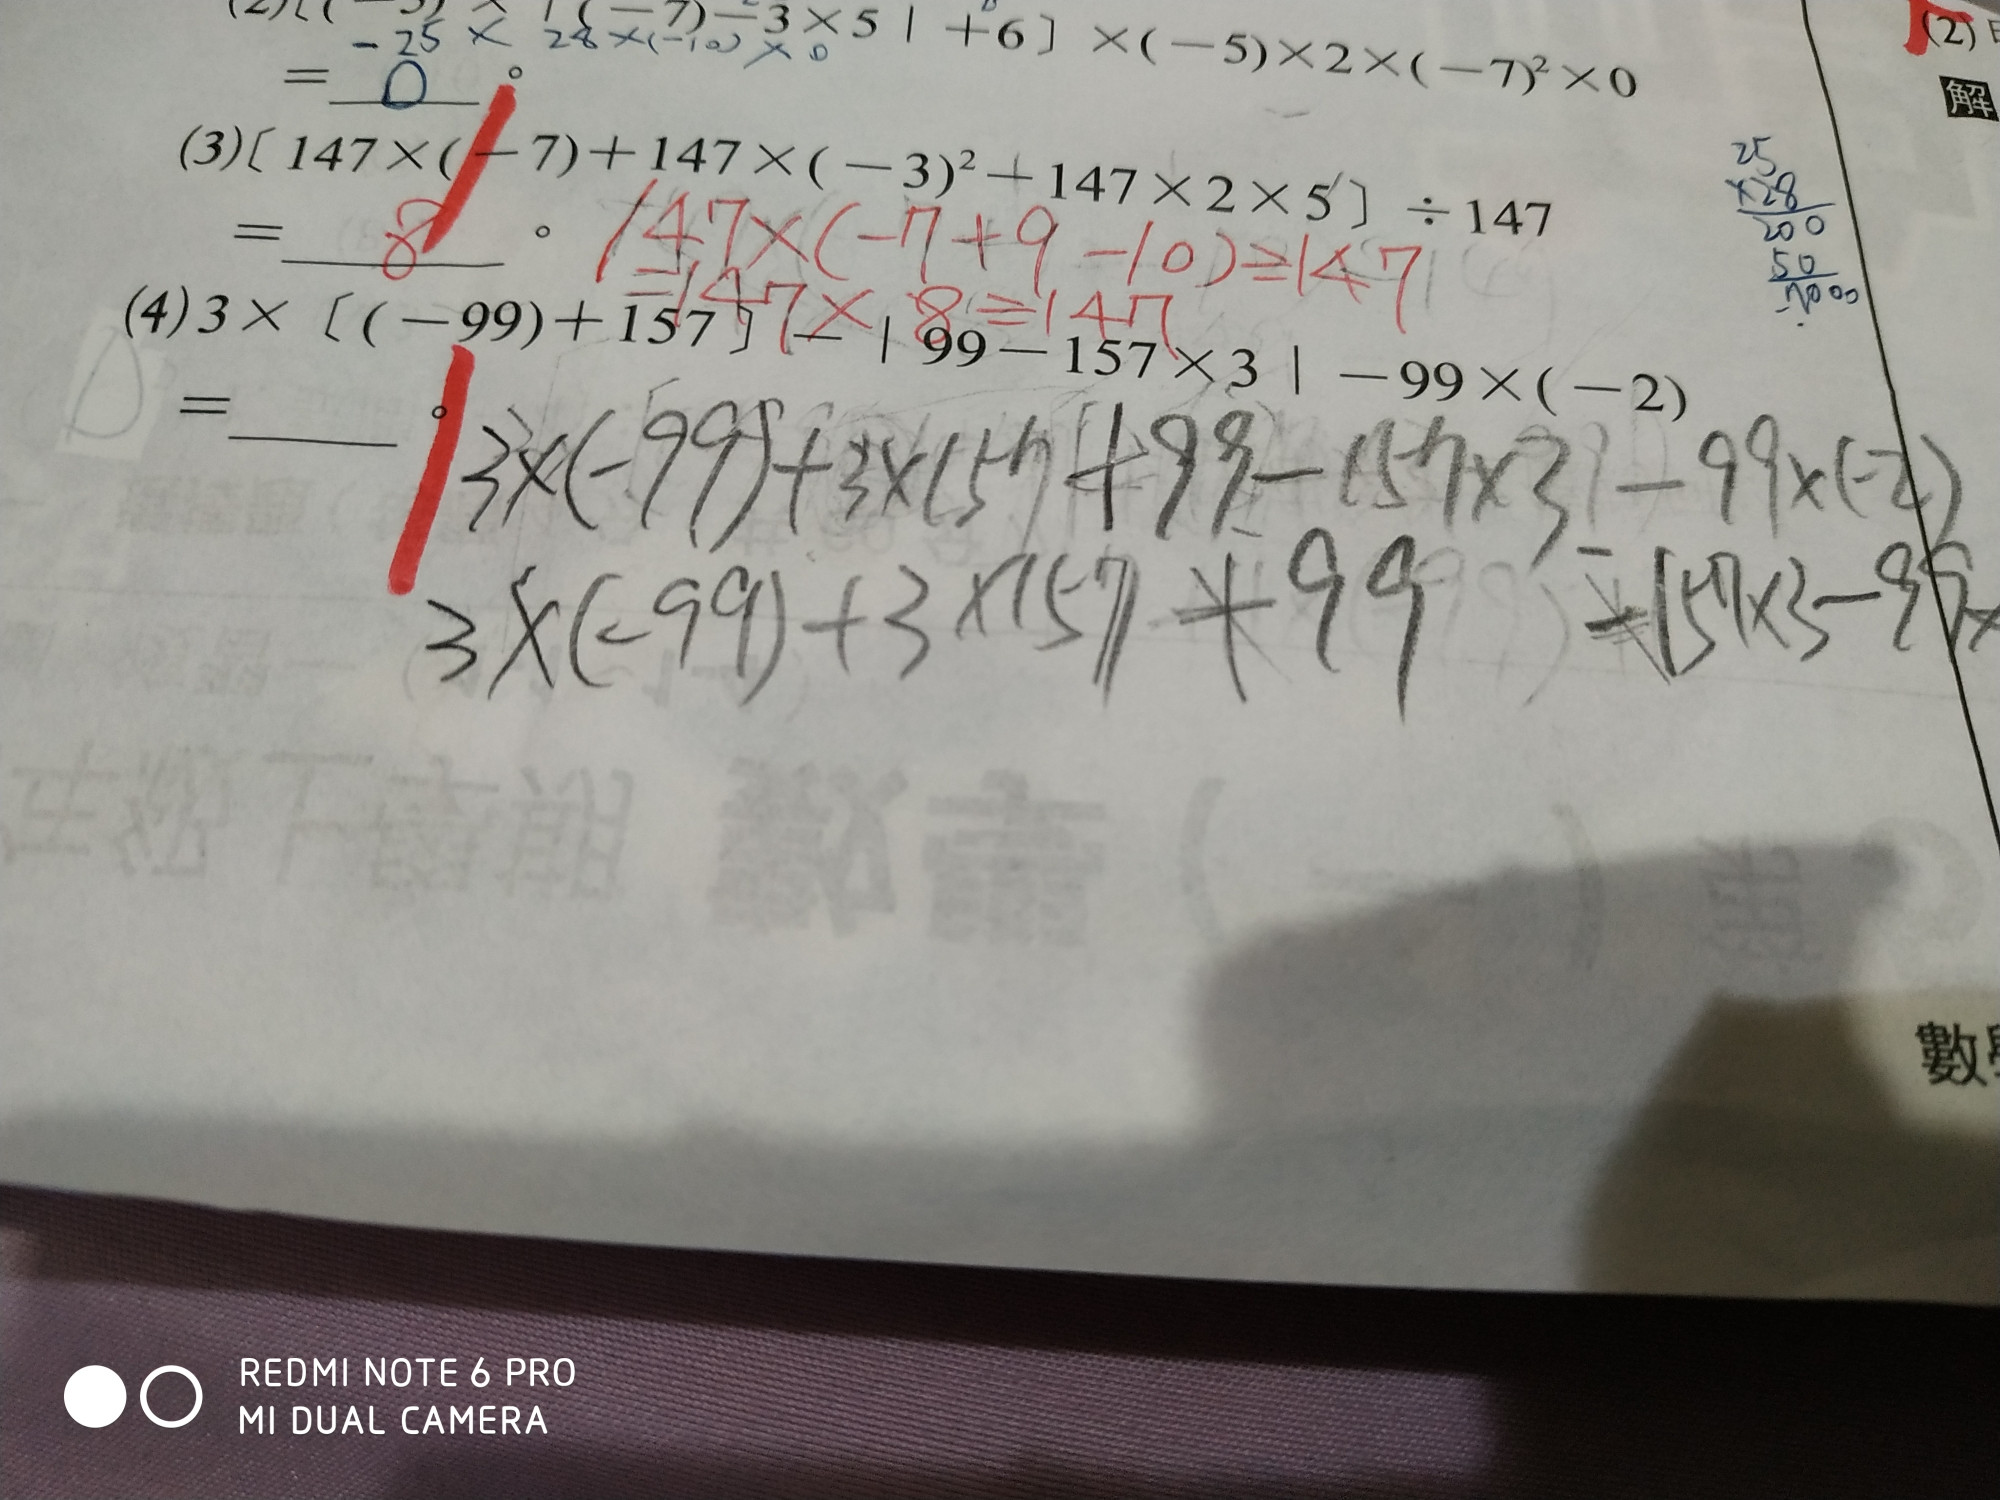 ×(-7)-3×5|+6〕×(-5)×2×(-7)²×0
-25 × 28×(-10)×0
= 0 。
(3)〔147×(-7)+147×(-3)²+147×2×5〕÷147
= 8 。
147×(-7+9-10)÷147
=147×8÷147
(4)3×〔(-99)+157〕-|99-157×3|-99×(-2)
=____。
3×(-99)+3×157+99-157×3-99×(-2)
3×(-99)+3×157+99 -157×3-99×
25
×28
200
50
(2)
解
數學
REDMI NOTE 6 PRO
MI DUAL CAMERA